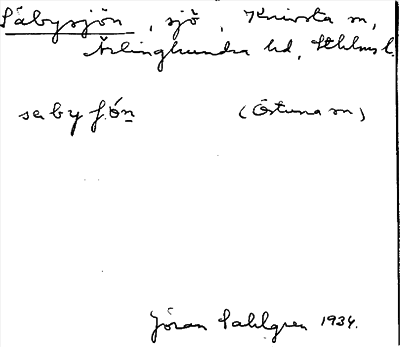 Säbysjön, sjö, Knivsta sn,
Ärlinghundra hd, Sthlms l.
sεbyʃǿn (Östuna sn)
Jöran Sahlgren 1934.